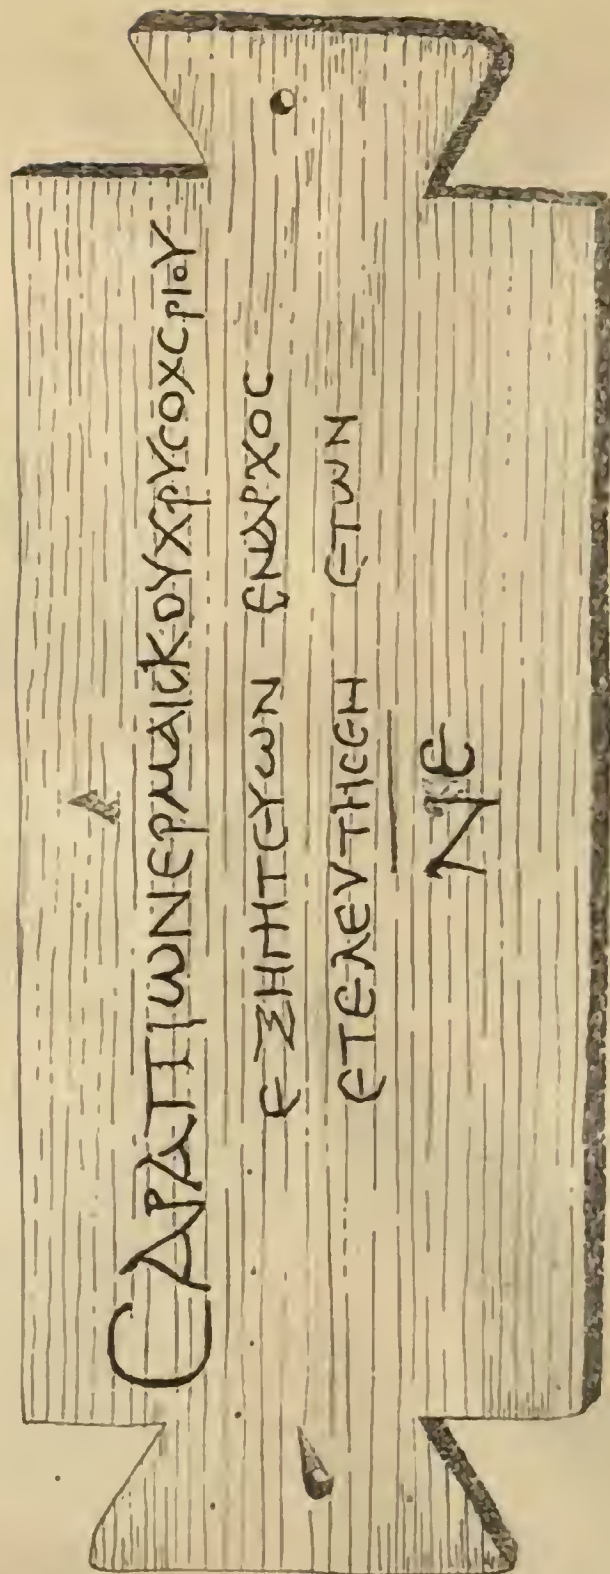 CΑΡΑΠΙωΝΕΡΜΑΙCΚΟΥΧΡΥCΟΧCΡΙΟΥ
ΕΞΗΓΗΤΕΥωΝ ΕΝΑΡΧΟC
ΕΤΕΛΕΥΤΗCΕΗ ΕΤωΝ
ΝΕ